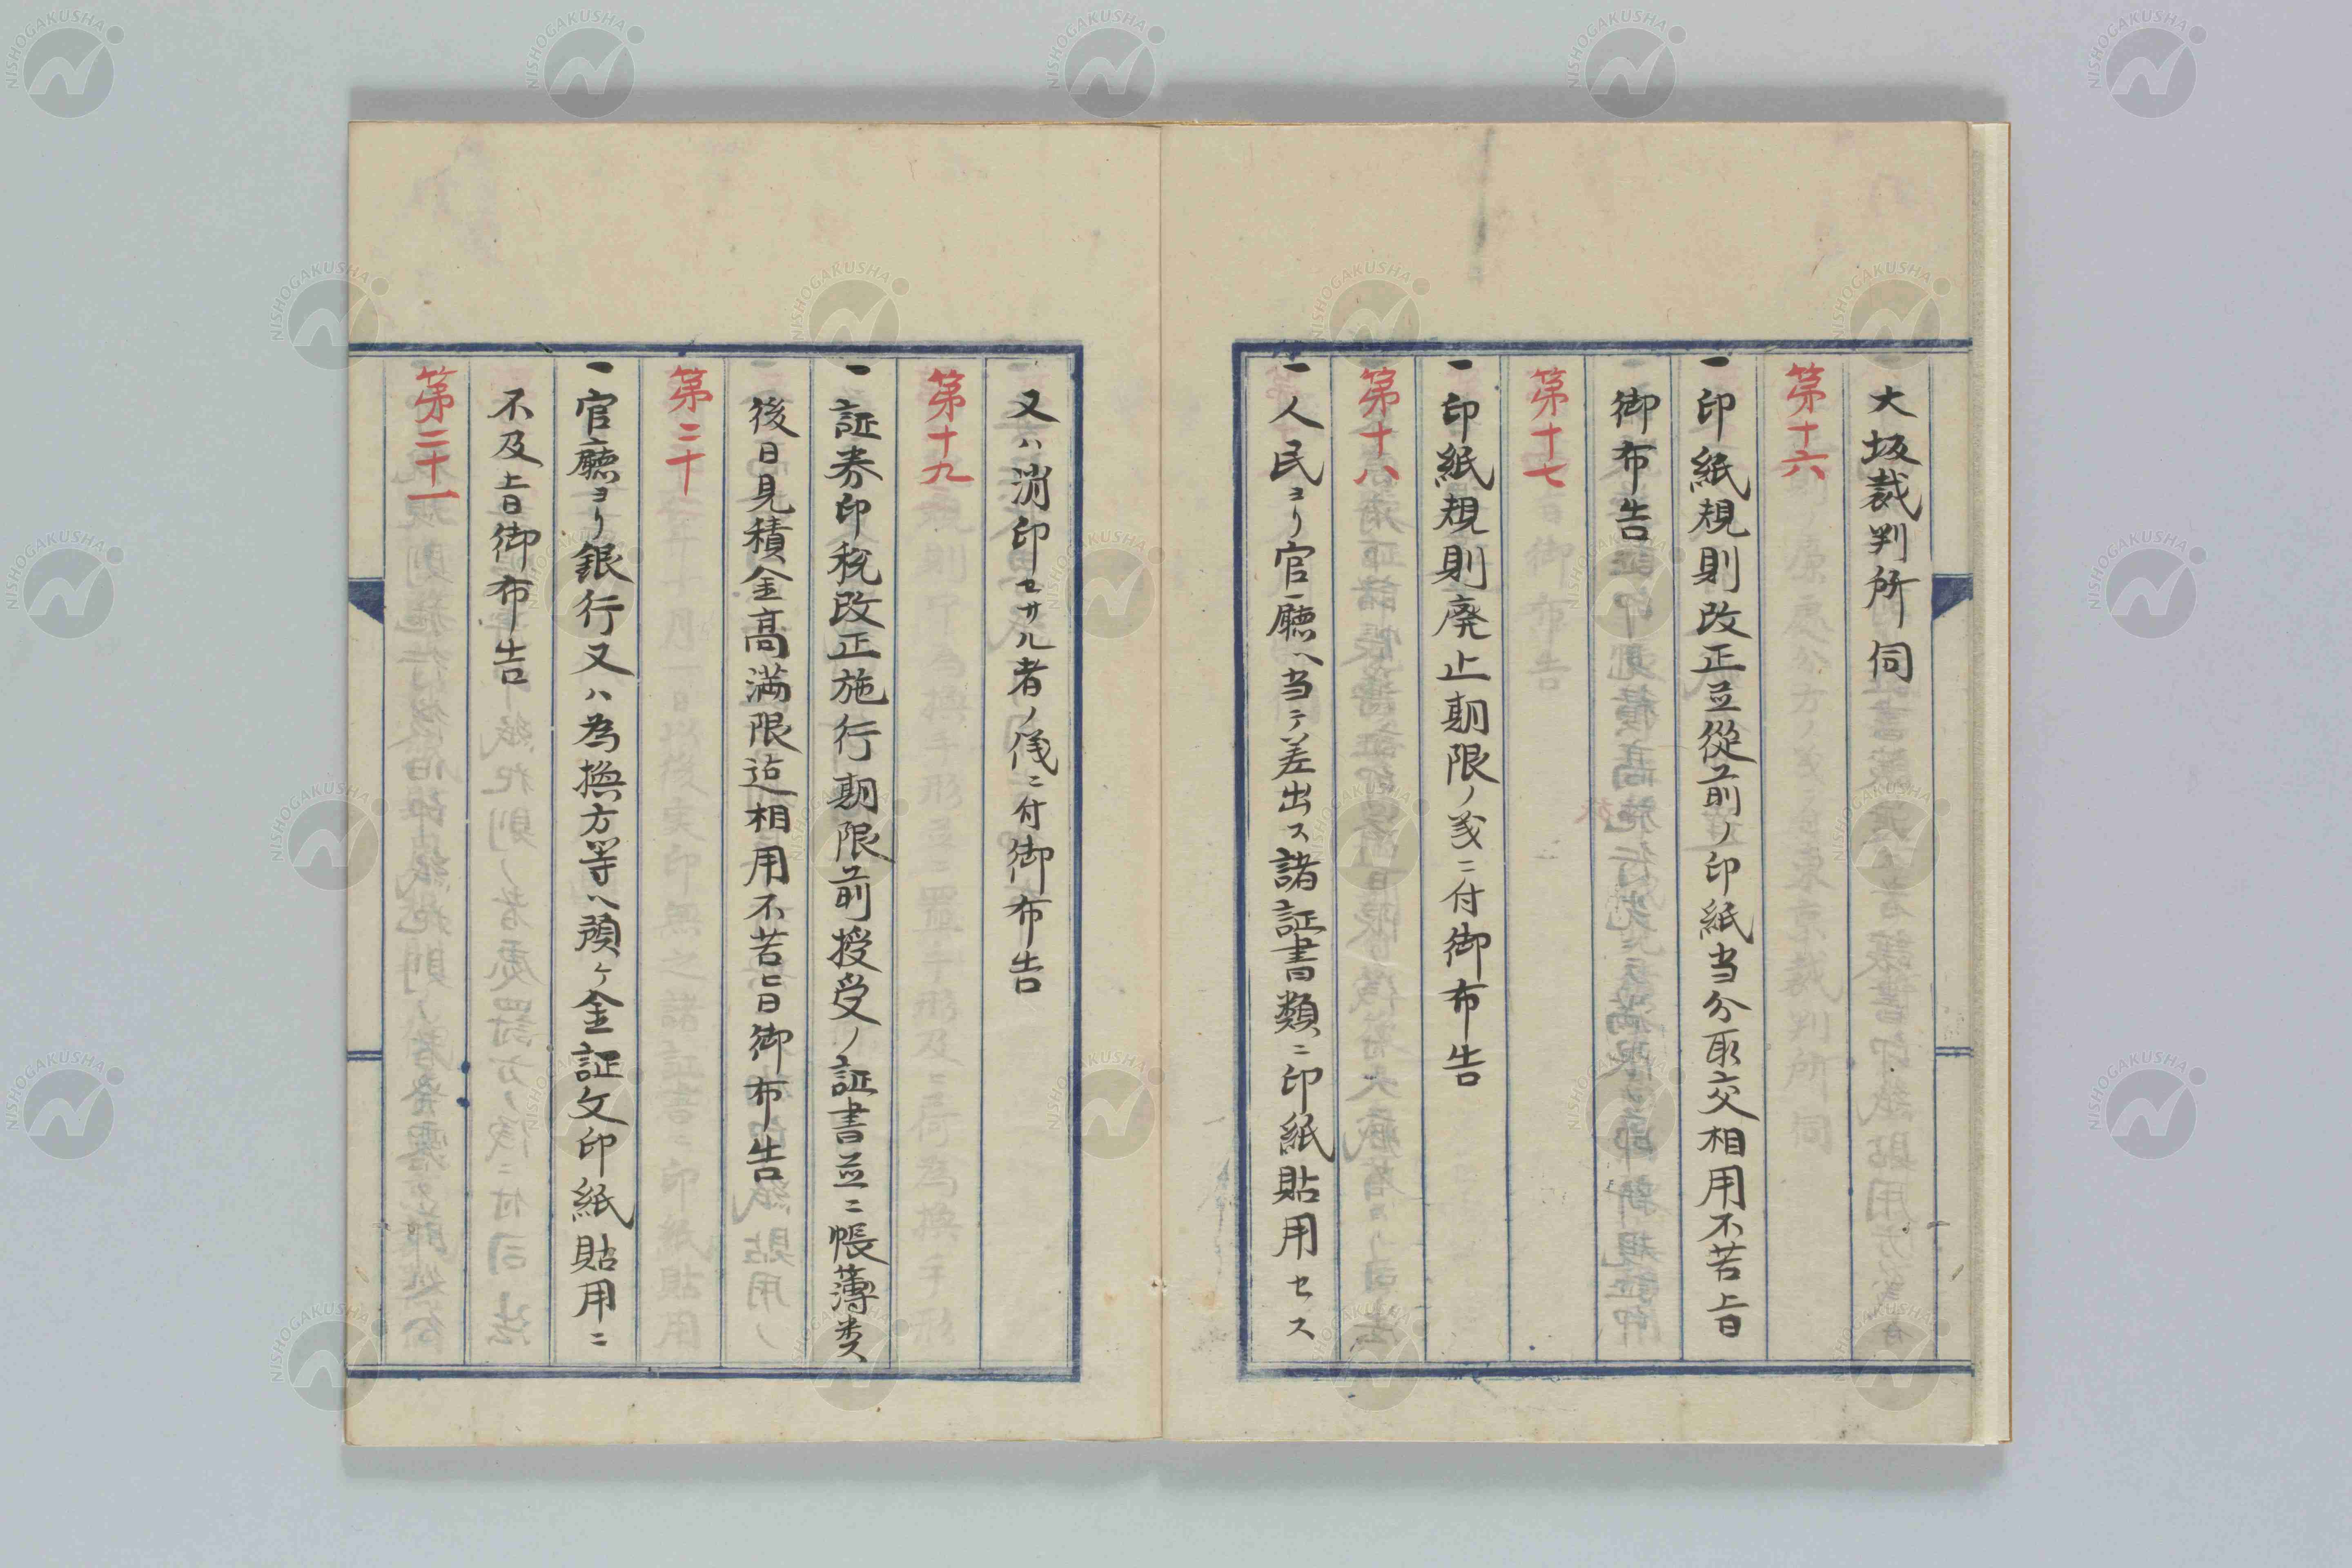 大坂裁判所伺
第十六
一印紙規則改正並従前ノ印紙当分取交相用不苦旨
御布告
第十七
一印紙規則廃止期限ノ義ニ付御布告
第十八
一人民ヨリ官廳ヘ当テ差出ス諸証書類ニ印紙貼用セス
又ハ消印セサル者ノ儀ニ付御布告
第十九
一証券印税改正施行期限前授受ノ証書並ニ帳薄類
後日見積金高満限迠相用不苦旨御布告
第二十
一官廳ヨリ銀行又ハ為換方等ヘ預ケ金証文印紙貼用ニ
不及旨御布告
第二十一
NISHOGAKUSHA